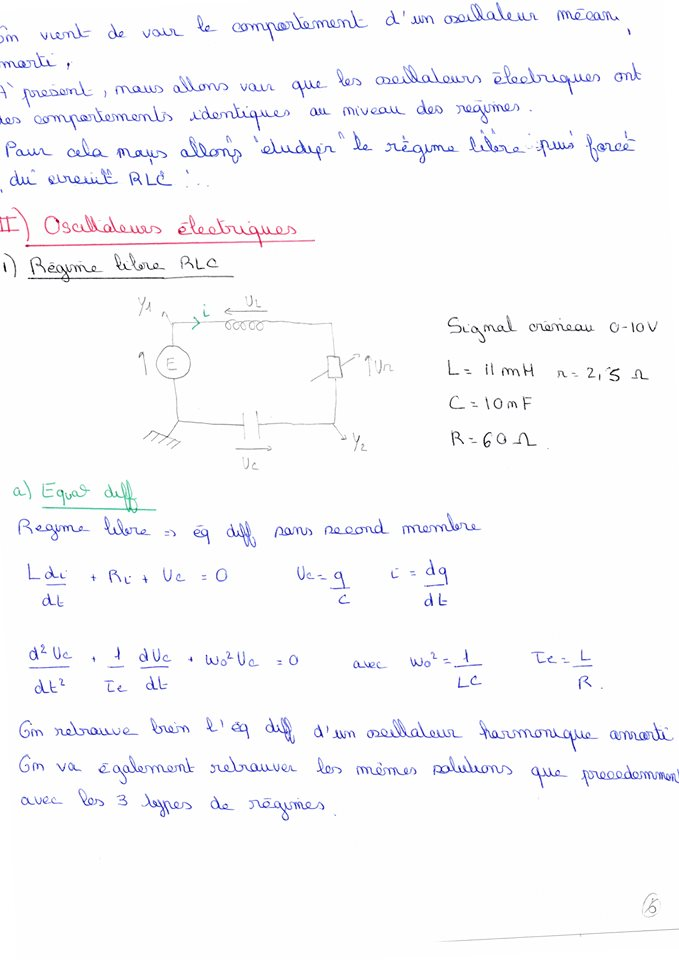 On vient de voir le comportement d'un oscillateur mécan
amorti,
A présent, nous allons voir que les oscillateurs électriques ont
des comportements identiques au niveau des régimes.
Pour cela nous allons étudier le régime libre puis forcé
du circuit RLC...
II) Oscillateurs électriques
1) Régime libre RLC
Y1 i UL
E Ur
Uc Y2
Signal créneau 0-10V
L = 11 mH r = 2,5 Ω
C = 10 mF
R = 60 Ω.
a) Equa° diff
Regime libre => éq diff sans second membre
L di/dt + Ri + Uc = 0 Uc = q/C i = dq/dt
d²Uc/dt² + 1/τe dUc/dt + ω0² Uc = 0 avec ω0² = 1/LC τe = L/R.
On retrouve bien l'éq diff d'un oscillateur harmonique amorti
On va également retrouver les mêmes solutions que precedemment
avec les 3 types de régimes.
5